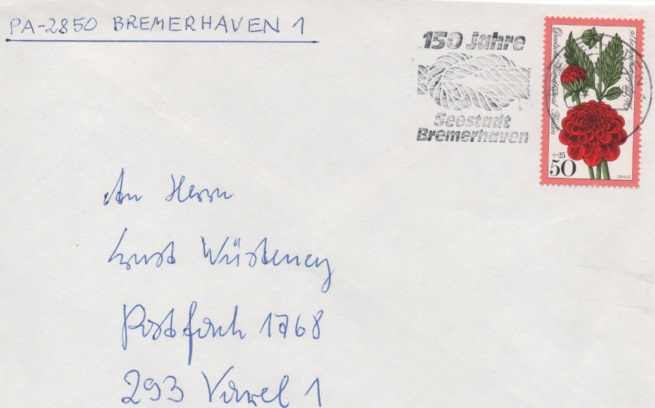 PA-2850 BREMERHAVEN 1
150 Jahre
Seestadt
Bremerhaven
Deutsche Bundespost Berlin
+25
50
An Herrn
Ernst Wüsteney
Postfach 1768
293 Varel 1